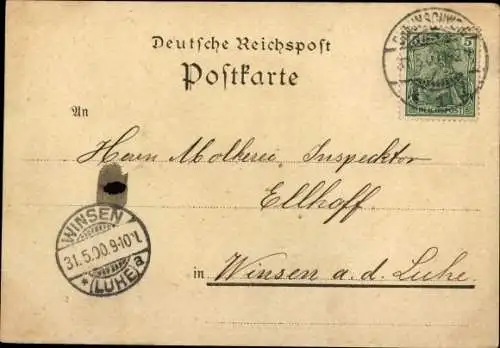 Deutsche Reichspost
Postkarte
5
REICHSPOST
An
Herrn Molkerei Inspecktor
Ellhoff.
in Winsen a. d. Luhe.
WINSEN
31.5.00.9-10V.
* (LUHE) a